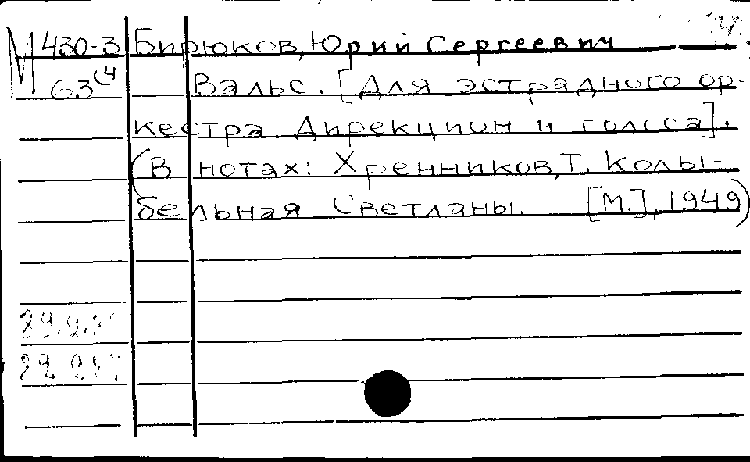 М 430-3 Бирюков, Юрий Сергеевич
63 Вальс. [Для эстрадного ор-
кестра. Дирекцион и голоса].
(В нотах: Хренников, Т. Колы-
бельная Светланы. [М.], 1949)